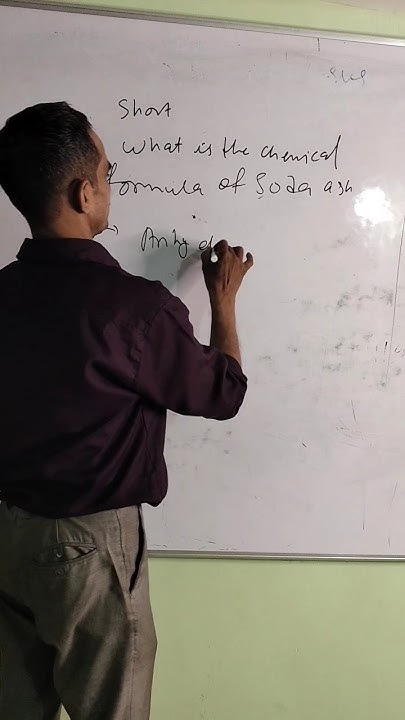 Short
What is the chemical
formula of Soda ash
→ Anhyd